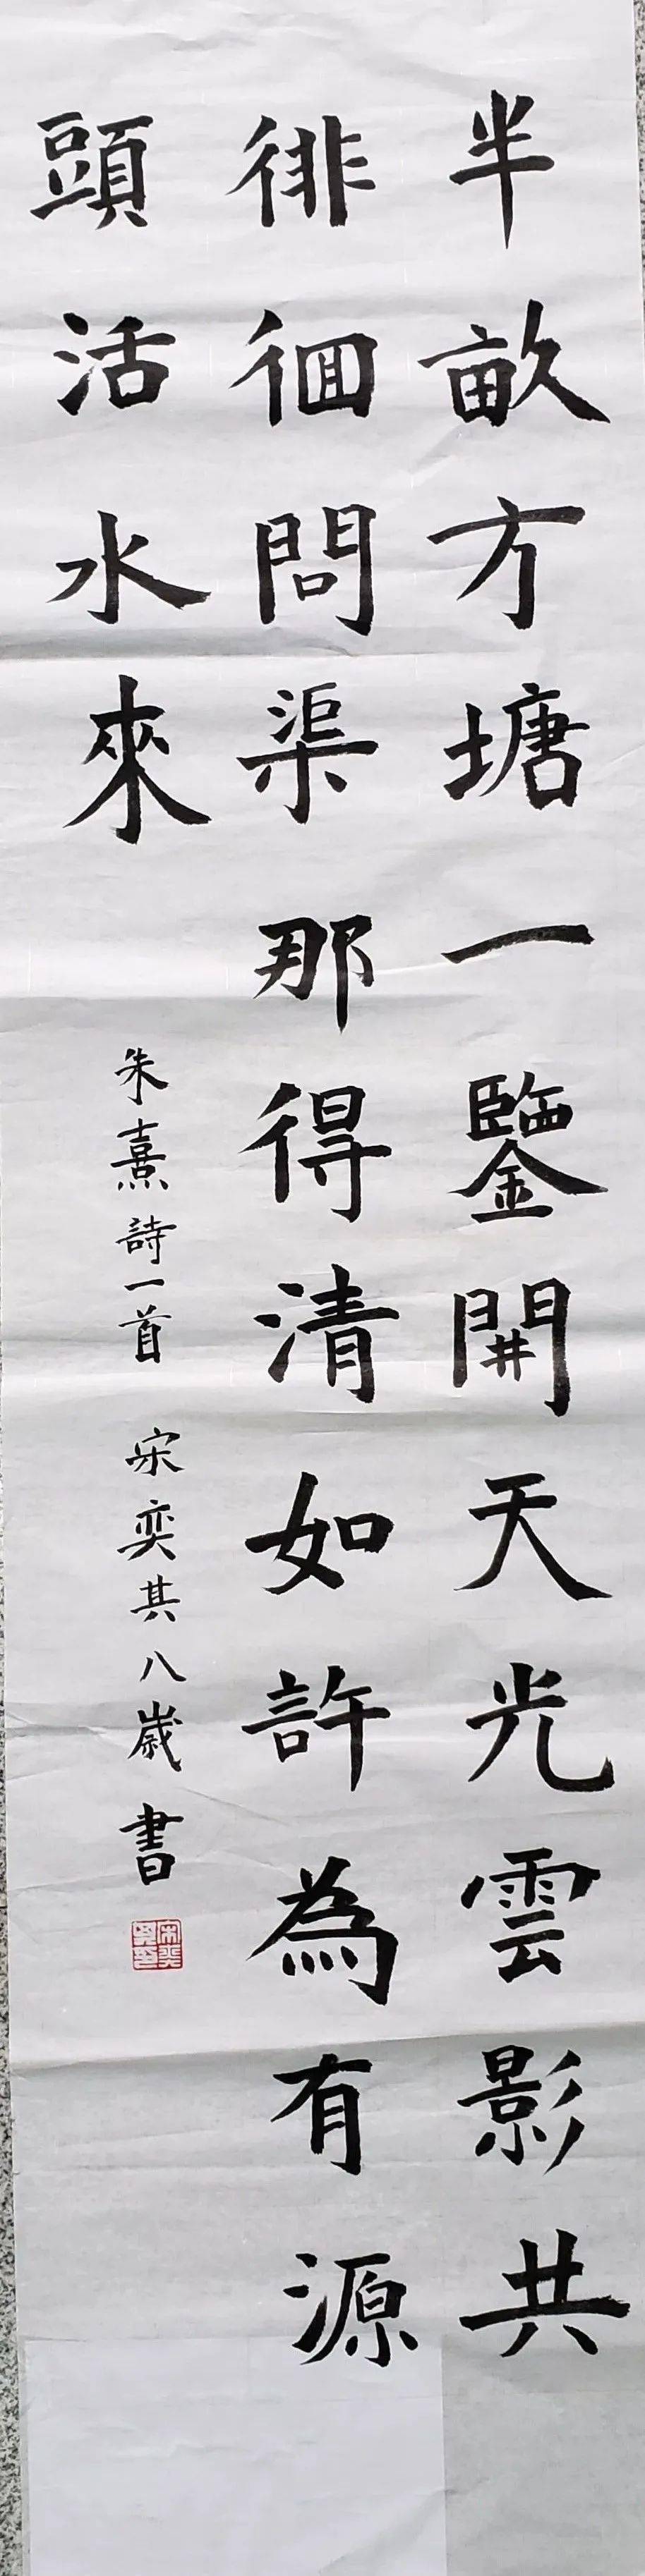 半畝方塘一鑒開天光雲影共
徘徊問渠那得清如許為有源
頭活水來
朱熹詩一首 宋奕其八歲書